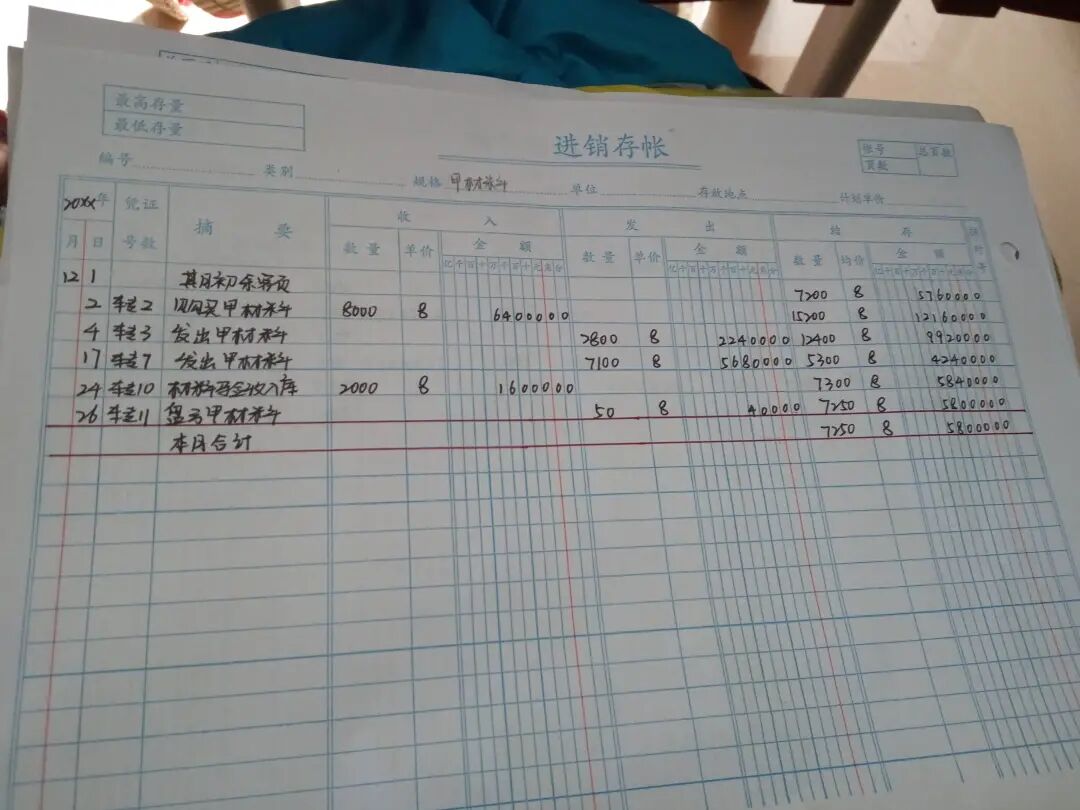 最高存量
最低存量
进销存帐
张号 总页数
页数
编号 类别 规格 甲材料 单位 存放地点 计划单价
20XX年 凭证 摘要 收入 发出 结存
月 日 号数 数量 单价 金额 数量 单价 金额 数量 均价 金额
亿千百十万千百十元角分 亿千百十万千百十元角分 亿千百十万千百十元角分
12 1 期初余额 7200 8 5760000
2 转2 购买甲材料 8000 8 6400000 15200 8 12160000
4 转3 发出甲材料 2800 8 2240000 12400 8 9920000
17 转7 发出甲材料 7100 8 5680000 5300 8 4240000
24 转10 材料验收入库 2000 8 1600000 7300 8 5840000
26 转11 盘亏甲材料 50 8 40000 7250 8 5800000
本月合计 7250 8 5800000